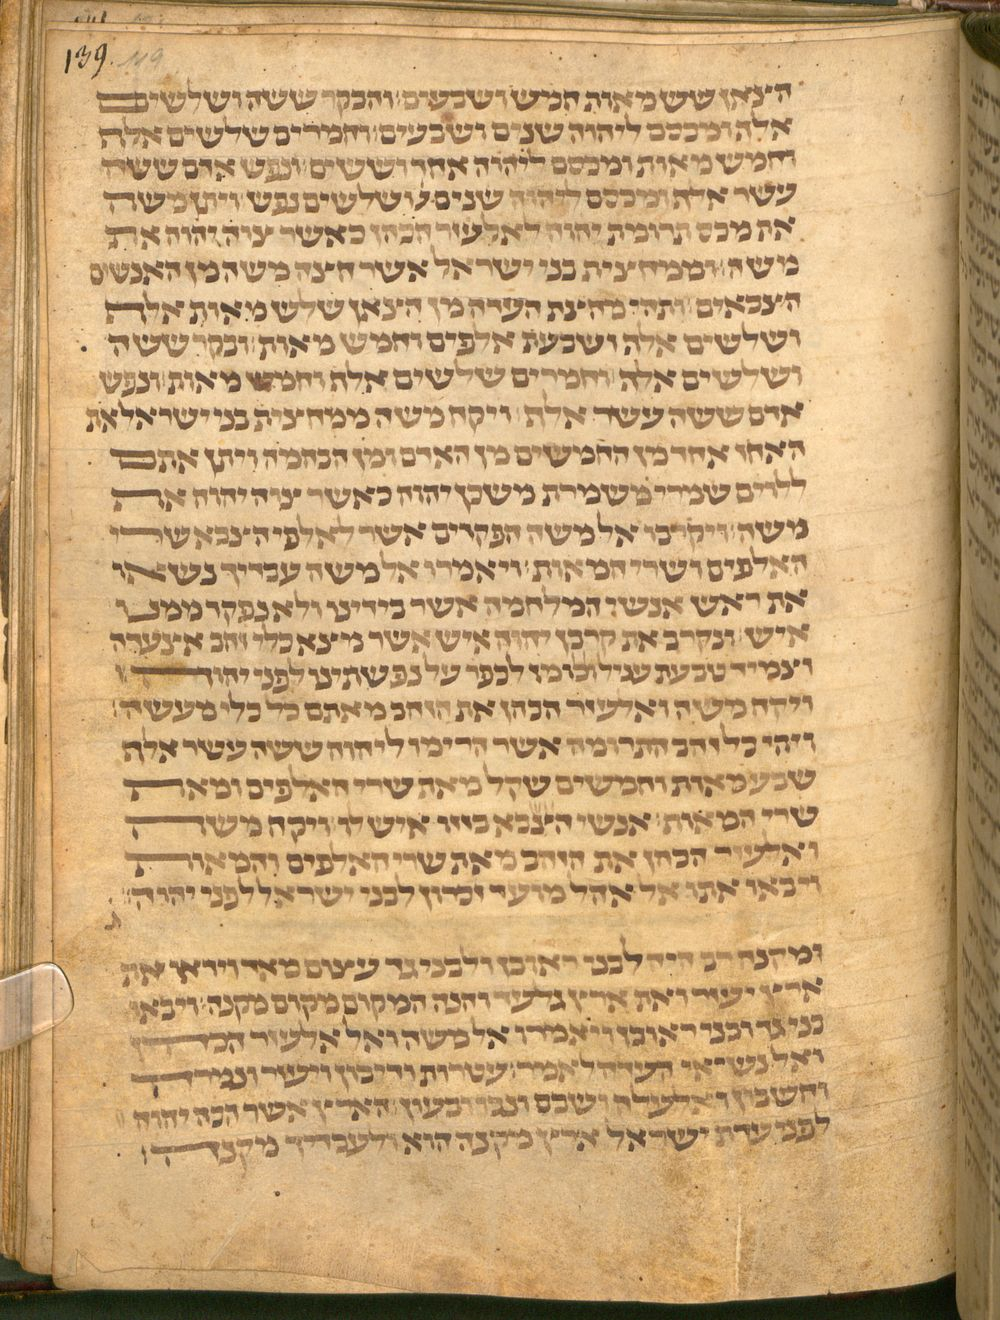 139. 119
הצאן שש מאות חמש ושבעים׃ והבקר ששה ושלשים
אלף ומכסם ליהוה שנים ושבעים׃ וחמרים שלשים אלף
וחמש מאות ומכסם ליהוה אחד וששים׃ ונפש אדם ששה
עשר אלף ומכסם ליהוה שנים ושלשים נפש׃ ויתן משה
את מכס תרומת יהוה לאלעזר הכהן כאשר צוה יהוה את
משה׃ וממחצית בני ישראל אשר חצה משה מן האנשים
הצבאים׃ ותהי מחצת העדה מן הצאן שלש מאות אלף
ושלשים אלף ושבעת אלפים וחמש מאות׃ ובקר ששה
ושלשים אלף׃ וחמרים שלשים אלף וחמש מאות׃ ונפש
אדם ששה עשר אלף׃ ויקח משה ממחצית בני ישראל את
האחז אחד מן החמשים מן האדם ומן הבהמה ויתן אתם
ללוים שמרי משמרת משכן יהוה כאשר צוה יהוה את
משה׃ ויקרבו אל משה הפקדים אשר לאלפי הצבא שרי
האלפים ושרי המאות׃ ויאמרו אל משה עבדיך נשאו
את ראש אנשי המלחמה אשר בידינו ולא נפקד ממנו
איש׃ ונקרב את קרבן יהוה איש אשר מצא כלי זהב אצעדה
וצמיד טבעת עגיל וכומז לכפר על נפשתינו לפני יהוה׃
ויקח משה ואלעזר הכהן את הזהב מאתם כל כלי מעשה׃
ויהי כל זהב התרומה אשר הרימו ליהוה ששה עשר אלף
שבע מאות וחמשים שקל מאת שרי האלפים ומאת
שרי המאות׃ אנשי הצבא בזזו איש לו׃ ויקח משה
ואלעזר הכהן את הזהב מאת שרי האלפים והמאות
ויבאו אתו אל אהל מועד זכרון לבני ישראל לפני יהוה׃
ומקנה רב היה לבני ראובן ולבני גד עצום מאד ויראו את
ארץ יעזר ואת ארץ גלעד והנה המקום מקום מקנה׃ ויבאו
בני גד ובני ראובן ויאמרו אל משה ואל אלעזר הכהן
ואל נשיאי העדה לאמר׃ עטרות ודיבון ויעזר ונמרה
וחשבון ואלעלה ושבם ונבו ובעון׃ הארץ אשר הכה יהוה
לפני עדת ישראל ארץ מקנה הוא ולעבדיך מקנה׃